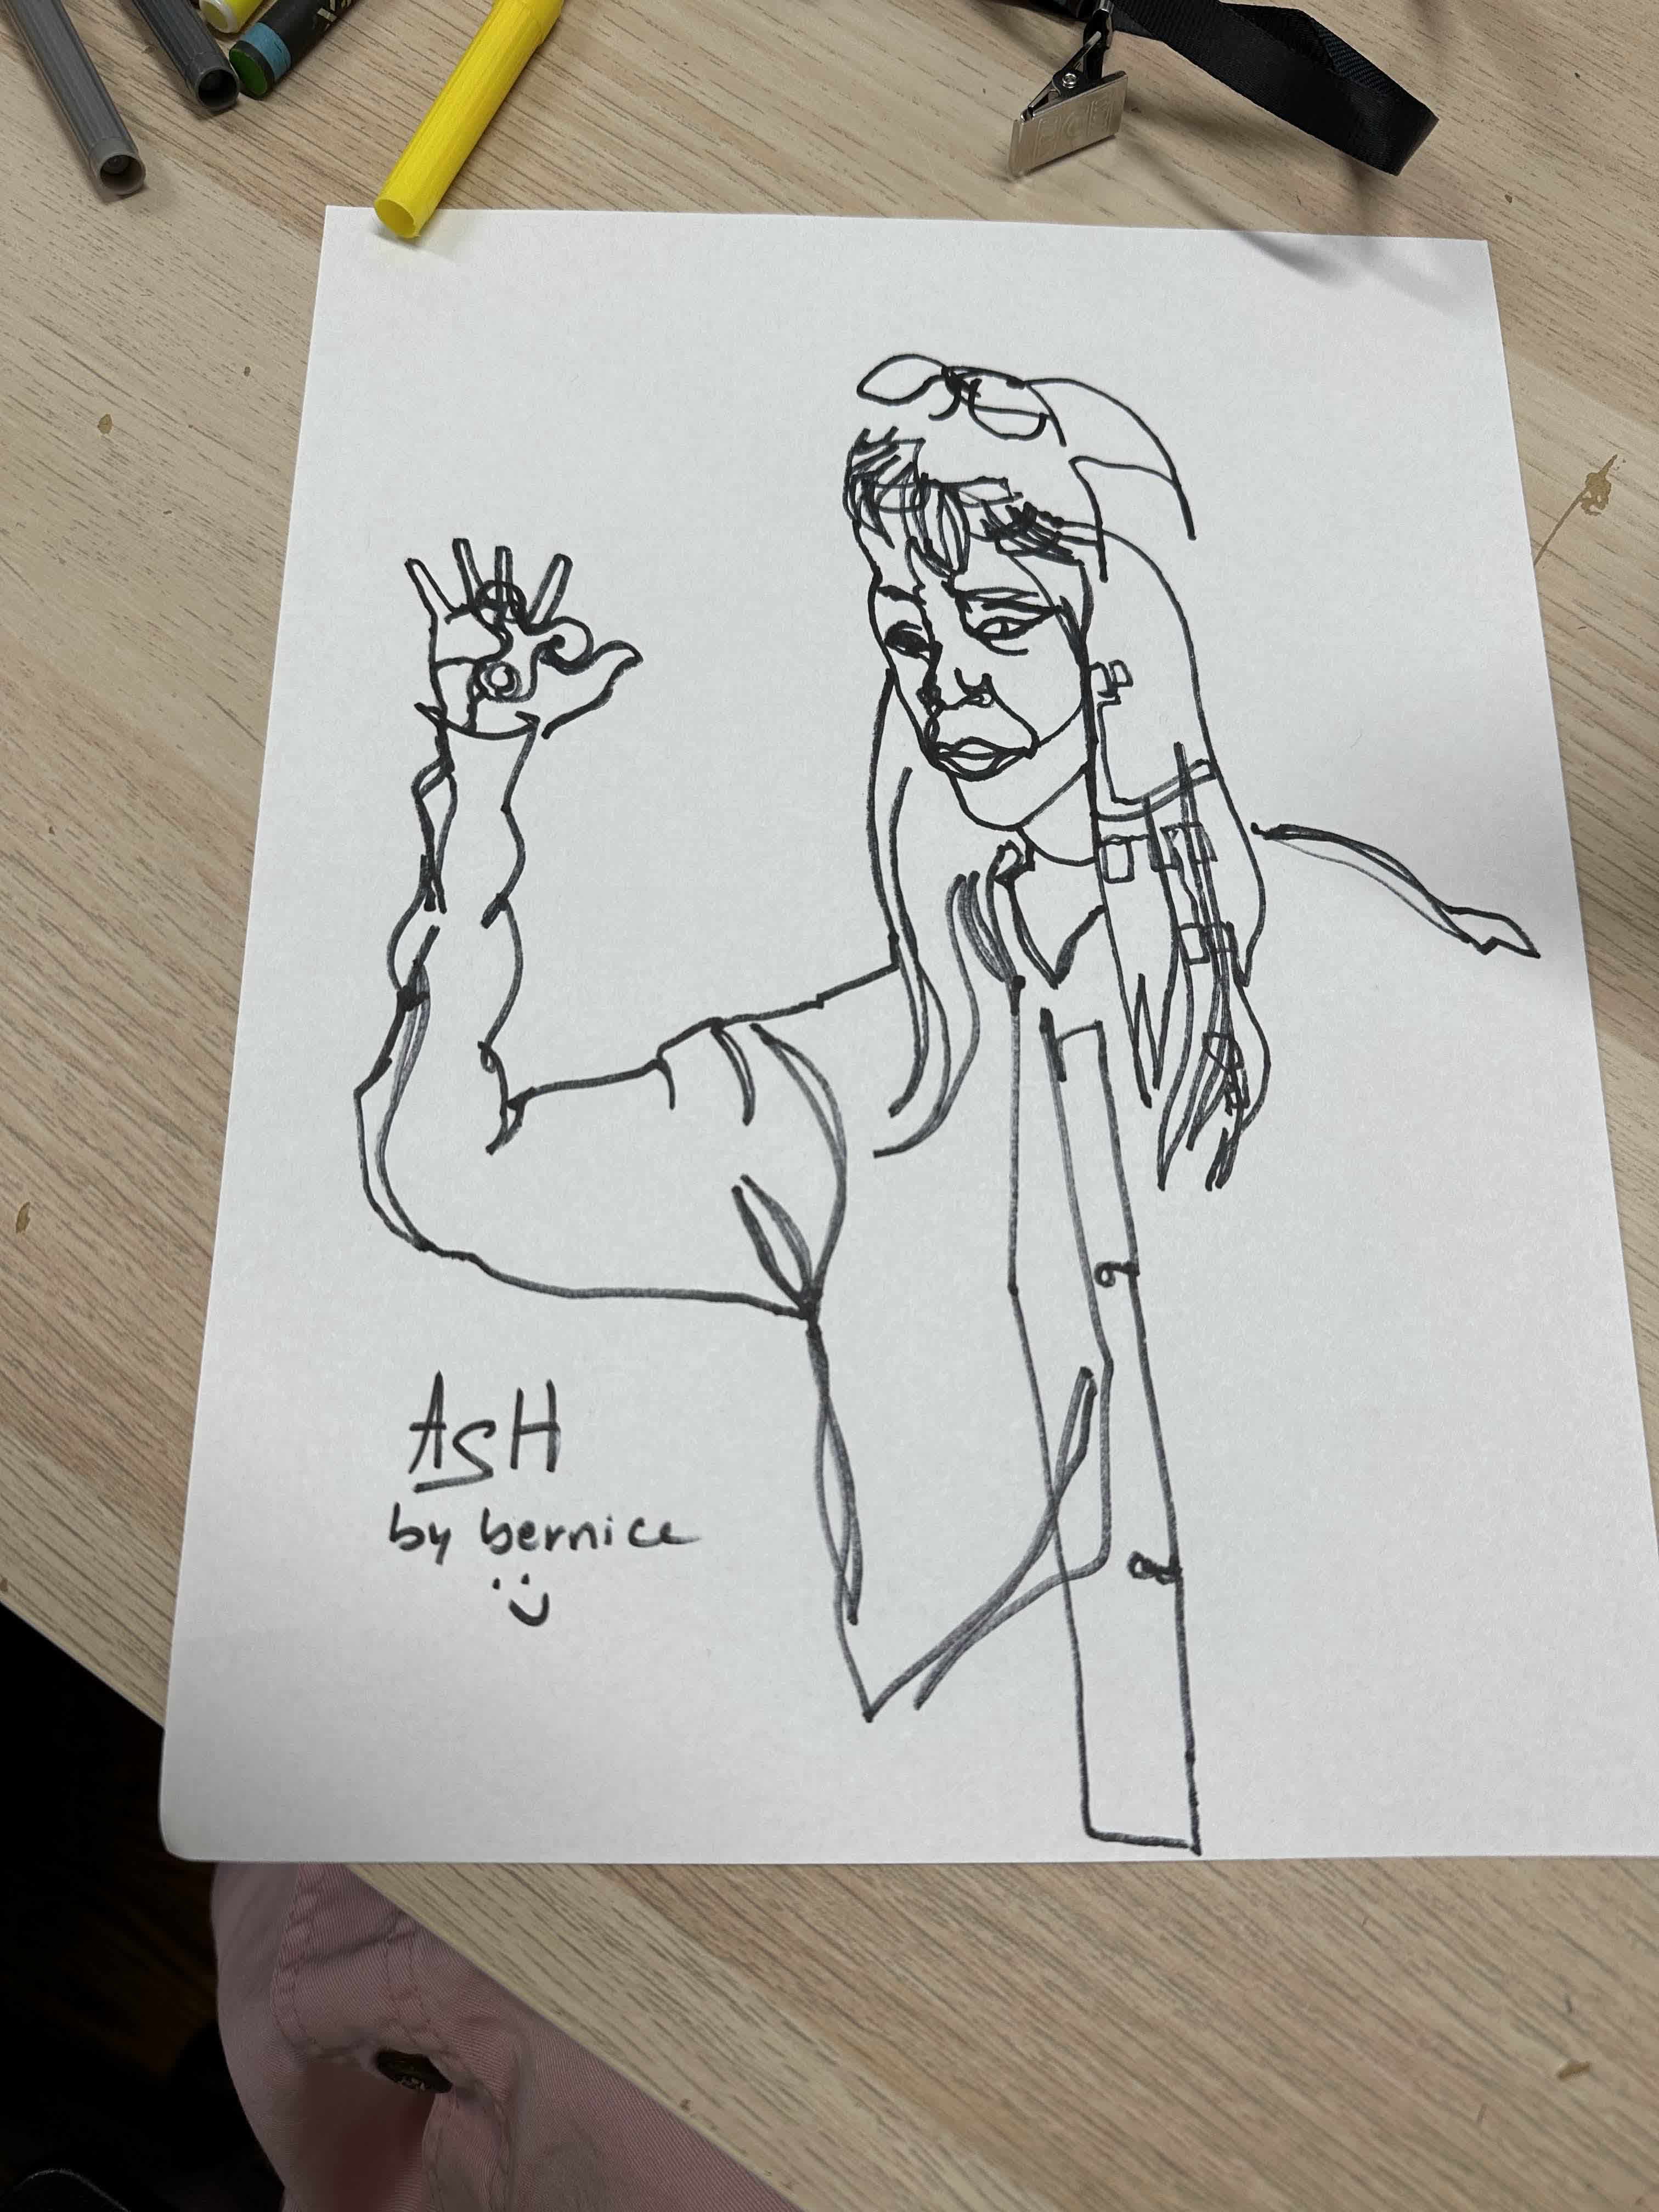 ASH
by bernice